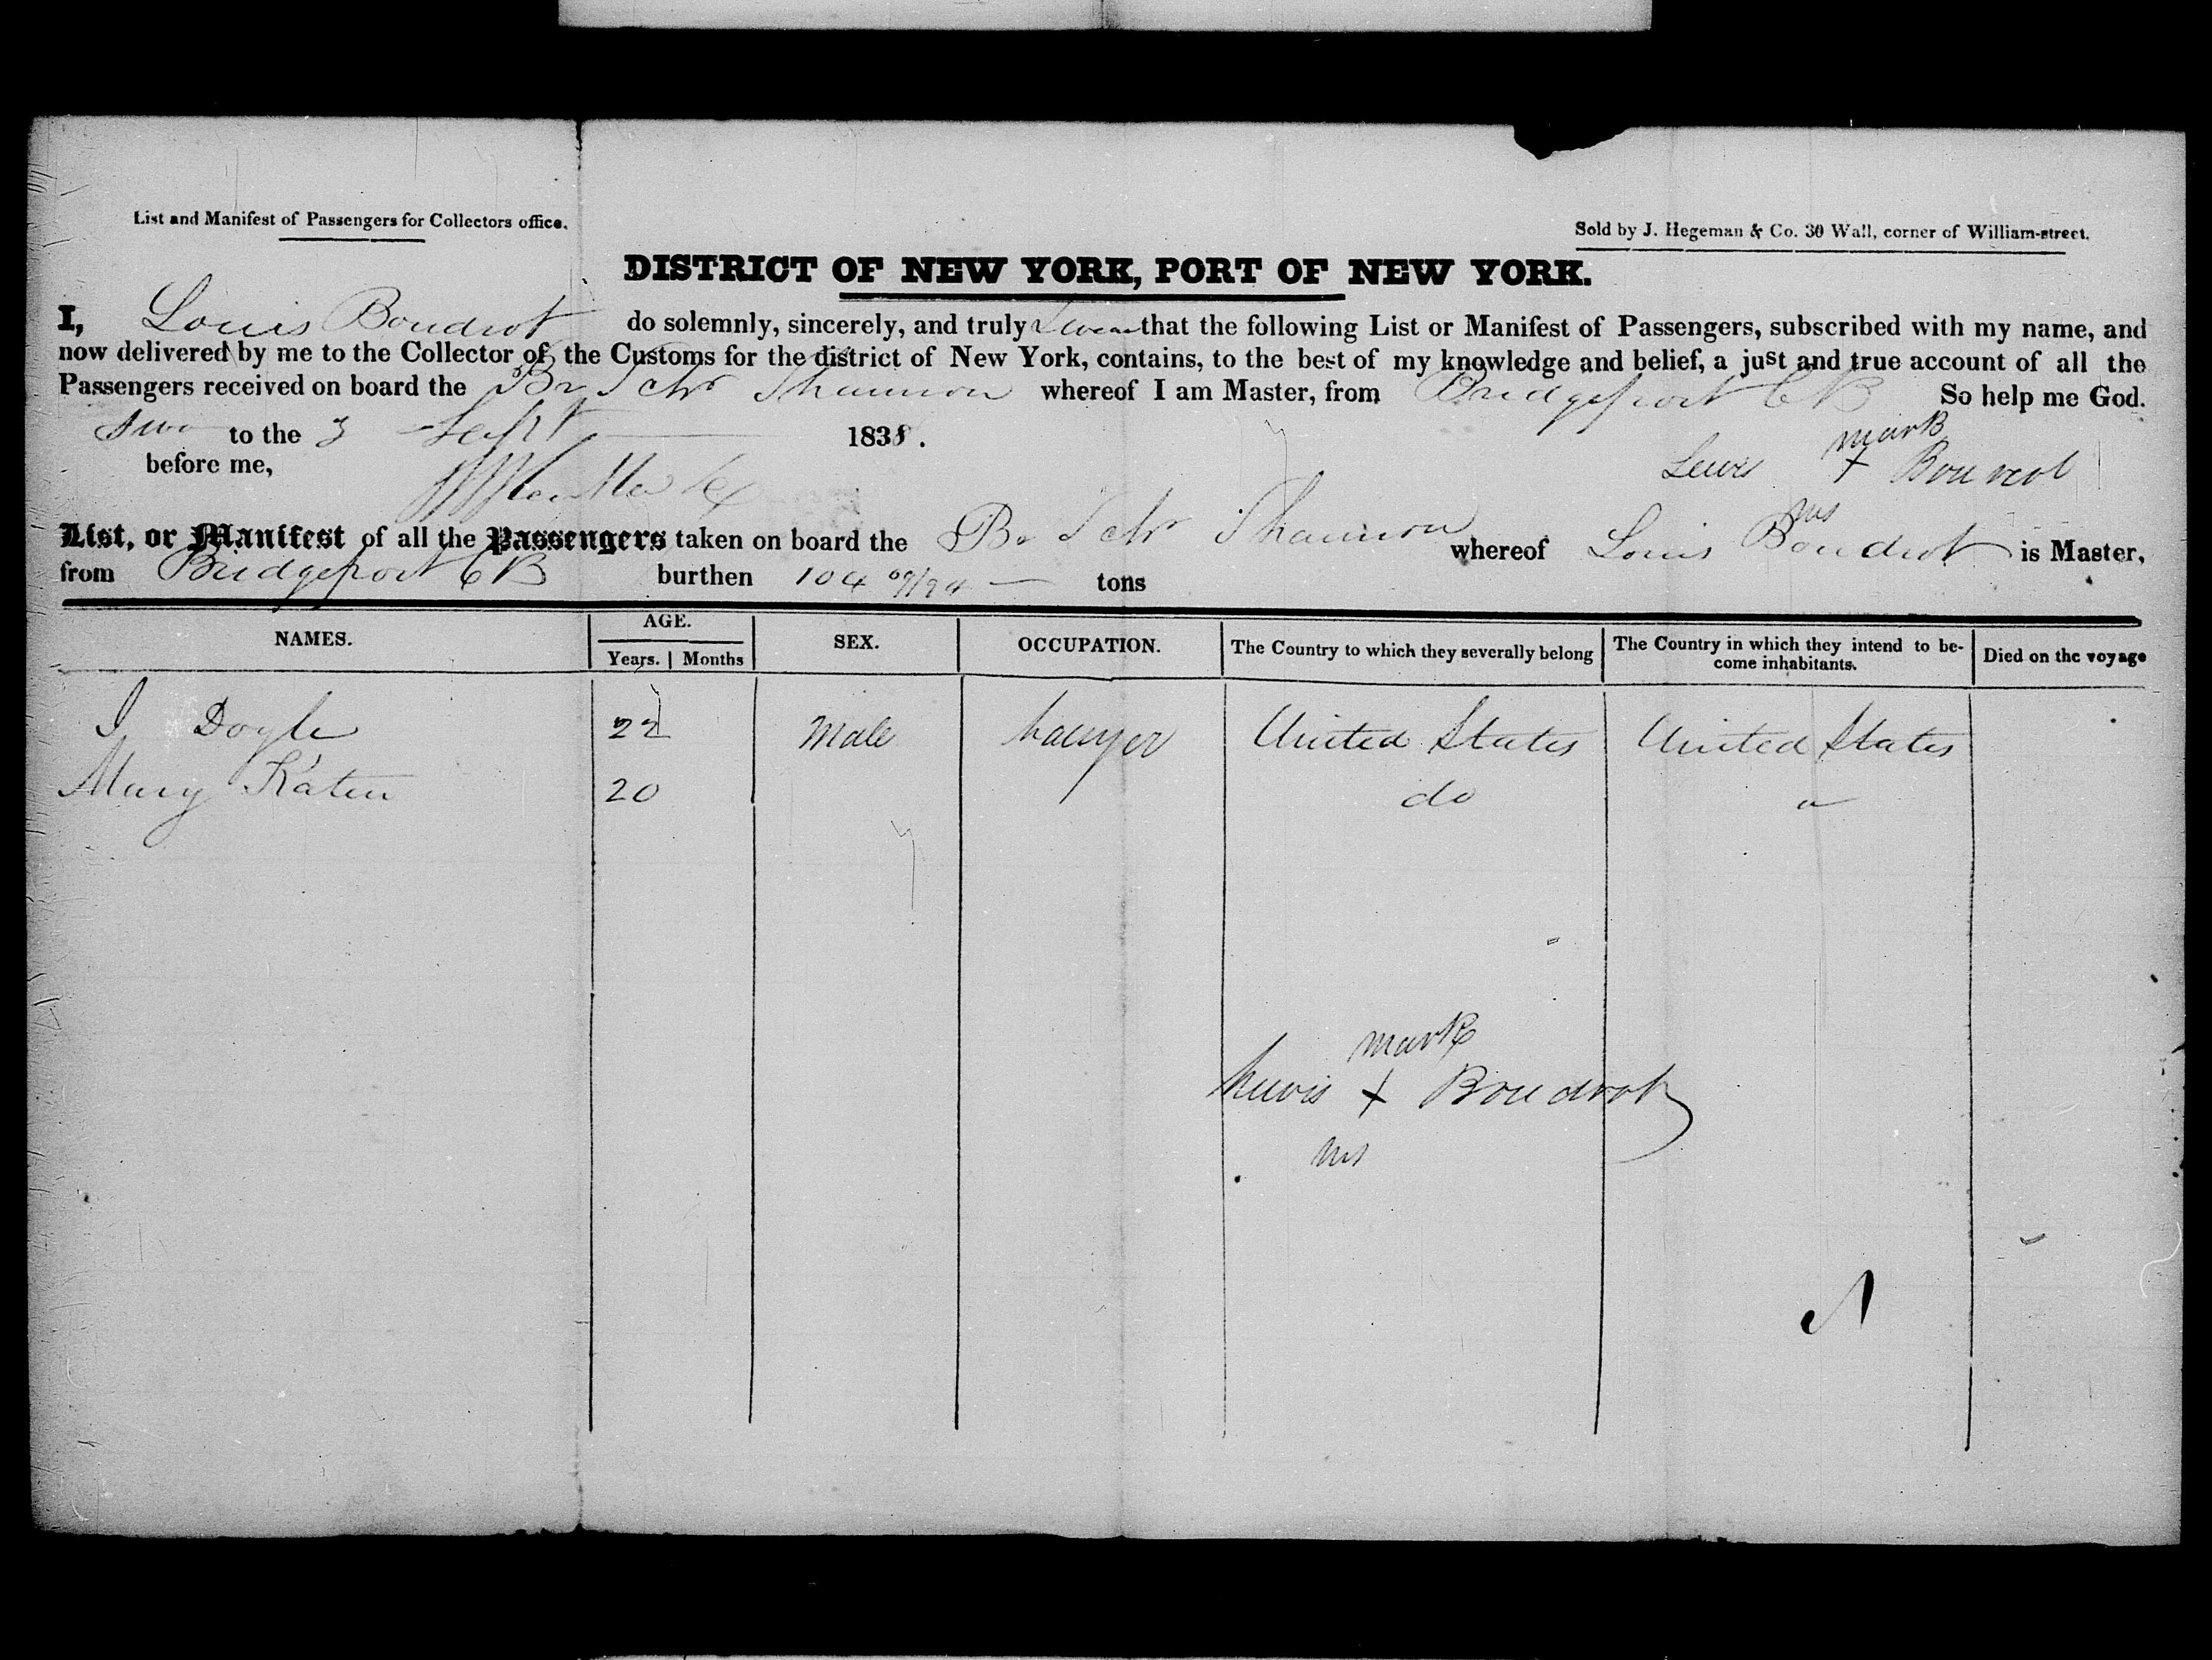 List and Manifest of Passengers for Collectors office.
Sold by J. Hegeman & Co. 30 Wall, corner of William-street.
DISTRICT OF NEW YORK, PORT OF NEW YORK.
I, Louis Boudrot do solemnly, sincerely, and truly Swear that the following List or Manifest of Passengers, subscribed with my name, and
now delivered by me to the Collector of the Customs for the district of New York, contains, to the best of my knowledge and belief, a just and true account of all the
Passengers received on board the Br Schr Shannon whereof I am Master, from Bridgeport CB So help me God.
Swo to the 3 Sept 1838.
mark
before me,
Lewis + Boudrot
his
List, or Manifest of all the Passengers taken on board the Br Schr Shannon whereof Louis Boudrot is Master,
from Bridgeport CB burthen 104 09/94 tons
NAMES. AGE. Years. Months SEX. OCCUPATION. The Country to which they severally belong The Country in which they intend to become inhabitants. Died on the voyage
J Doyle 22 Male Lawyer United States United States
Mary 20 do
mark
Lewis + Boudrot
his